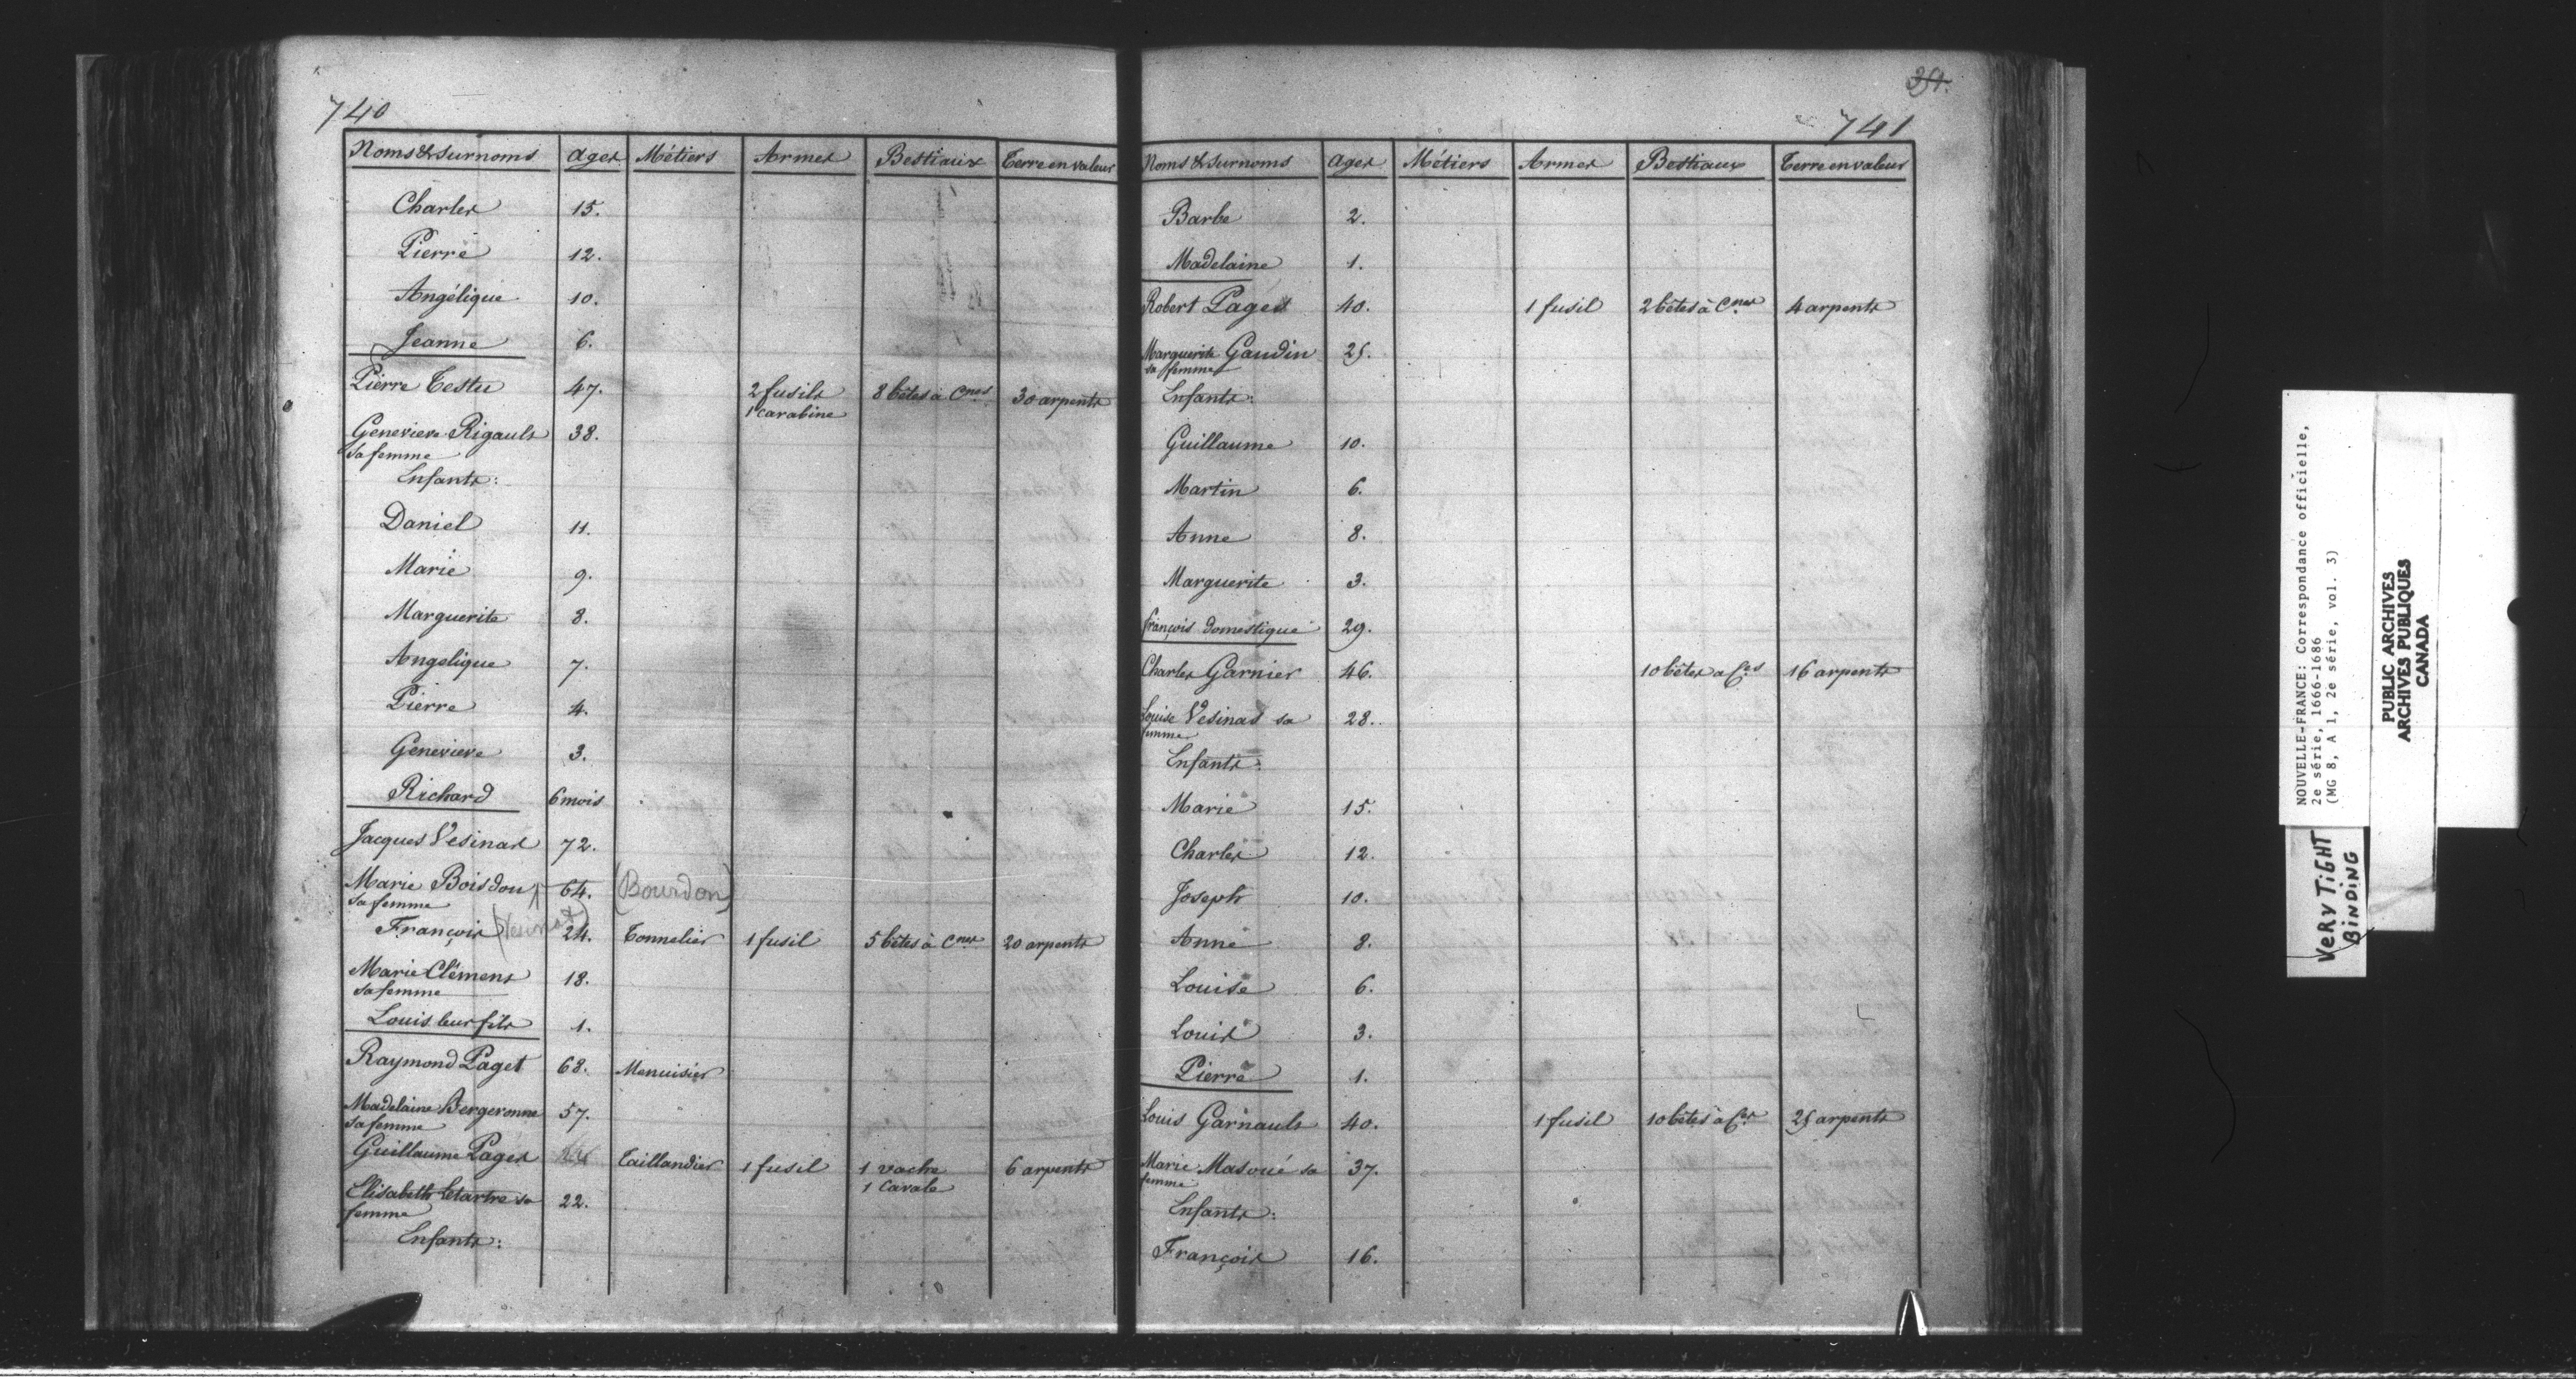 740
Noms & Surnoms Ages Métiers Armes Bestiaux Terre en valeur
Charles 15.
Pierre 12.
Angélique 10.
Jeanne 6.
Pierre Testu 47. 2 fusils 8 bêtes à Cnes 30 arpents
1 Carabine
Genevieve Rigault 38.
sa femme
Enfants:
Daniel 11.
Marie 9.
Marguerite 8.
Angelique 7.
Pierre 4.
Genevieve 3.
Richard 6 mois
Jacques Vesinat 72.
Marie Boisdon 64. (Bourdon)
sa femme
François (Vesinat) 24. Tonnelier 1 fusil 5 bêtes à Cnes 20 arpents
Marie Clémens 18.
sa femme
Louis leur fils 1.
Raymond Paget 68. Menuisier
Madelaine Bergeronne 57.
sa femme
Guillaume Paget Taillandier 1 fusil 1 vache 6 arpents
1 Cavale
Elisabeth Letartre sa 22.
femme
Enfants:
741
Noms & Surnoms Ages Métiers Armes Bestiaux Terre en valeur
Barbe 2.
Madelaine 1.
Robert Paget 40. 1 fusil 2 bêtes à Cnes 4 arpents
Marguerite Gaudin 25.
sa femme
Enfants:
Guillaume 10.
Martin 6.
Anne 8.
Marguerite 3.
François domestique 29.
Charles Garnier 46. 10 bêtes a Ces 16 arpents
Louise Vesinat sa 28.
femme
Enfants:
Marie 15.
Charles 12.
Joseph 10.
Anne 8.
Louise 6.
Louis 3.
Pierre 1.
Louis Garnault 40. 1 fusil 10 bêtes à Ces 25 arpents
Marie Masoué sa 37.
femme
Enfants:
François 16.
NOUVELLE-FRANCE: Correspondance officielle,
2e série, 1666-1686
(MG 8, A 1, 2e série, vol. 3)
PUBLIC ARCHIVES
ARCHIVES PUBLIQUES
CANADA
VERY TIGHT
BINDING